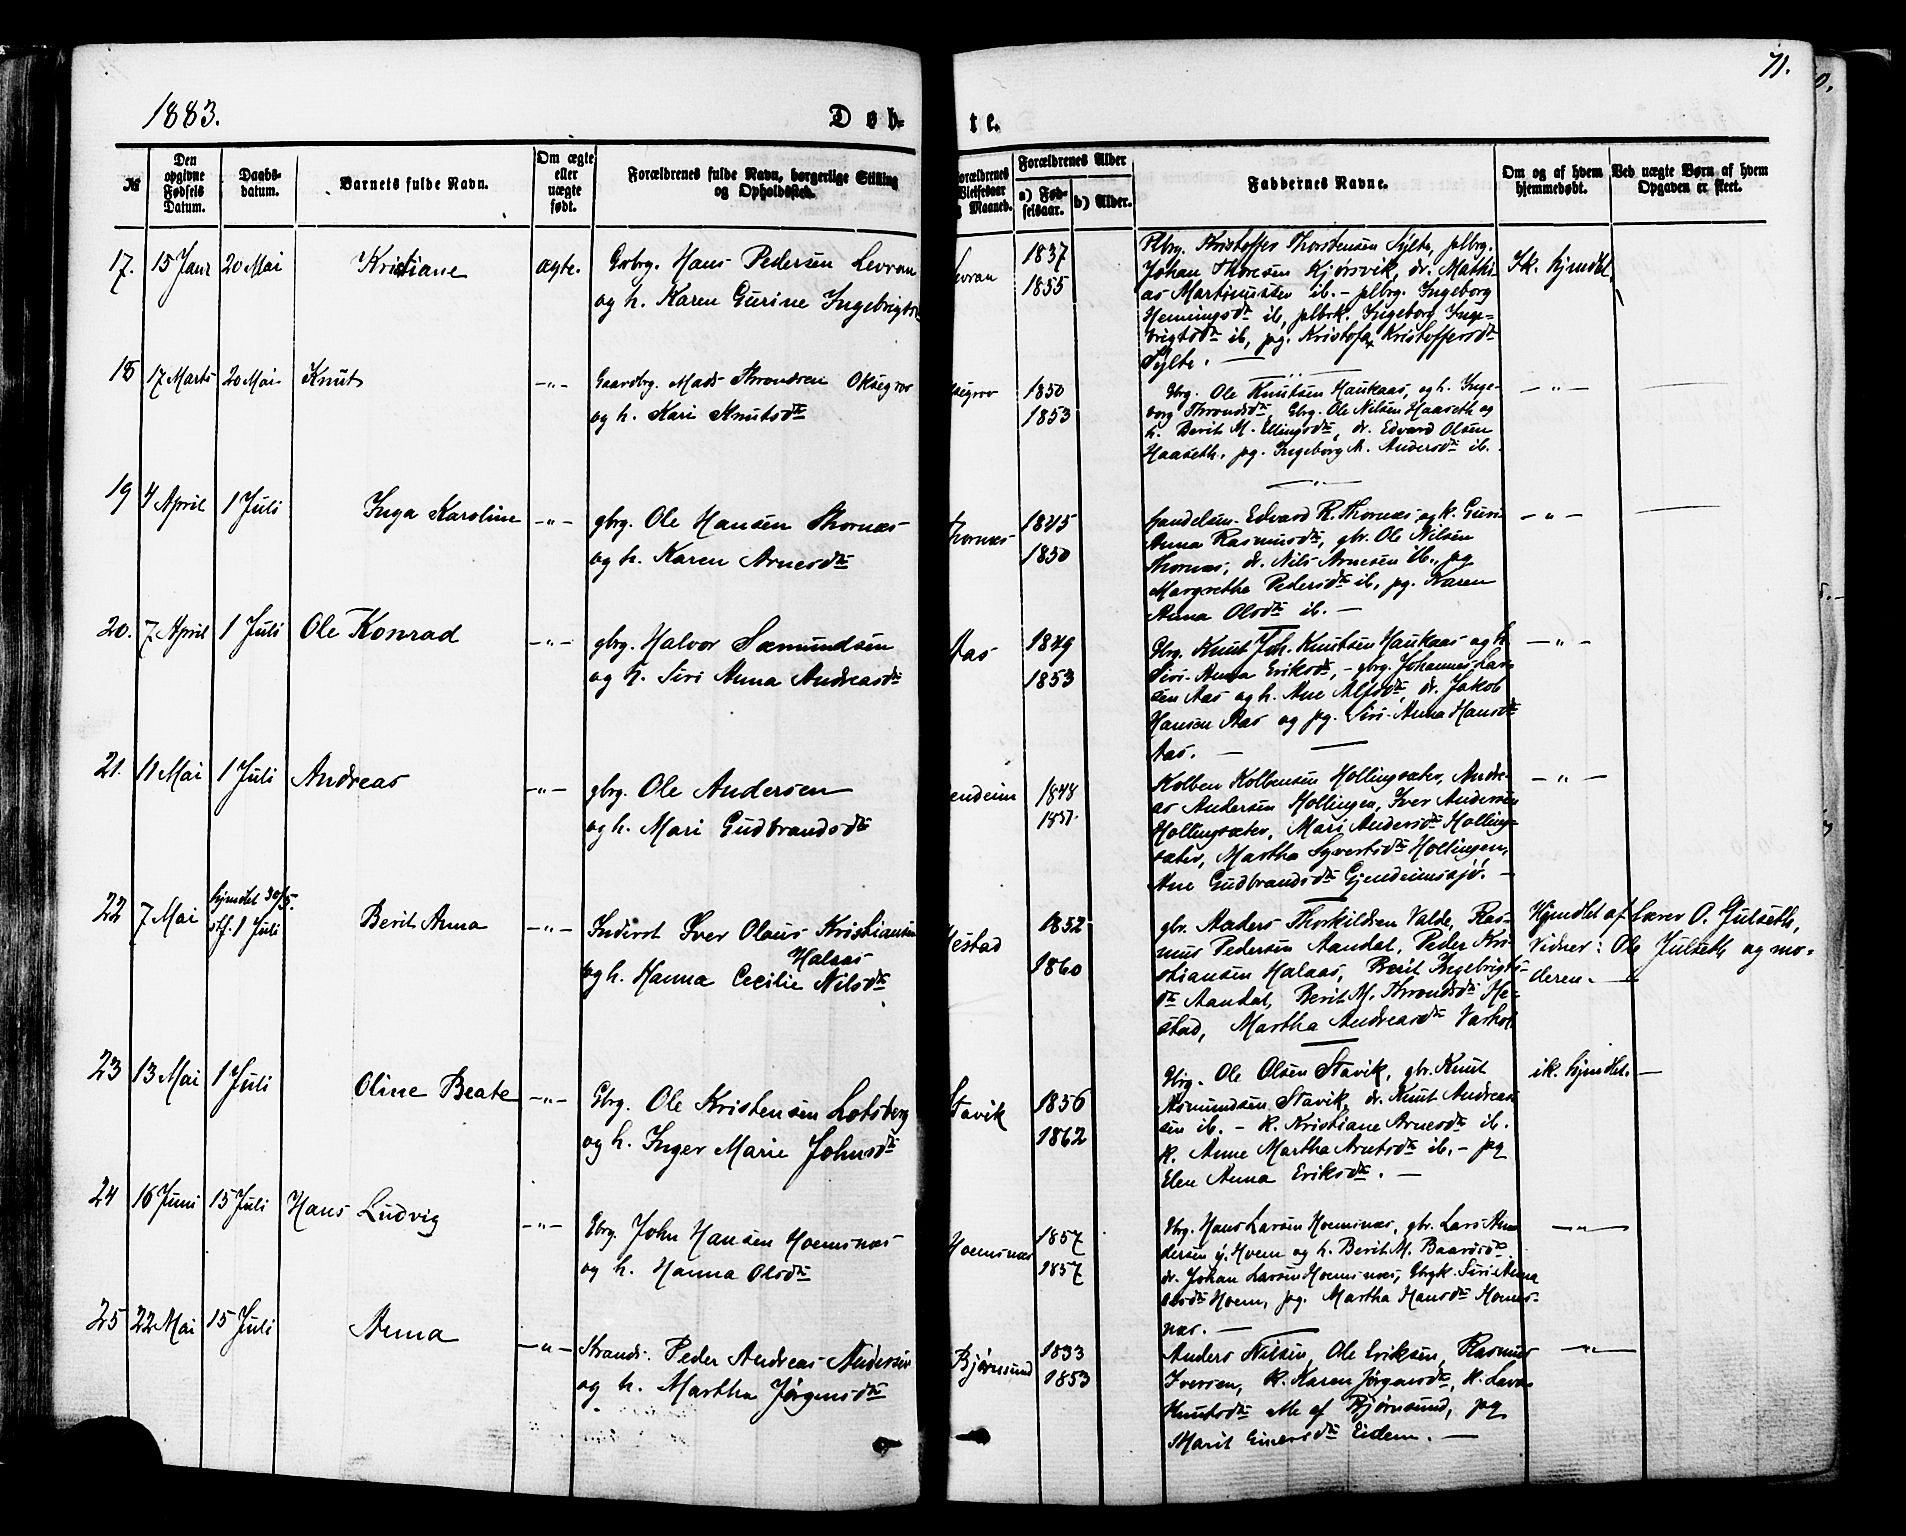 71.
1883.
Døb-
te.
№
Den opgivne Fødsels Datum.
Daabs-datum.
Barnets fulde Navn.
Om ægte eller uægte født.
Forældrenes fulde Navn, borgerlige Stilling og Opholdssted.
Forældrenes Alder
a) Fød-selsaar.
b) Alder.
Faddernes Navne.
Om og af hvem hjemmedøbt.
Ved uægte Børn af hvem Opgaven er skeet.
17. 15 Janr 20 Mai Kristiane ægte. Gbrg. Hans Pedersen Levran
og h. Karen Gurine Ingebrigtsd
1837
1855
Plbrg. Kristoffer Thorstensen Sylte, plbrg.
Johan Thoresen Kjørsvik, dr. Mathi-
as Martinussen ib. - plbrg. Ingeborg
Henningsdtr ib, plbrk. Ingeborg Inge-
brigtsdtr ib, pg. Kristofa Kristoffersdtr
Sylte. —
Ik. hjmdbt
18 17 Marts 20 Mai Knut -"- Gaardbrg. Mads Throndsen Oksegrov
og h. Kari Knutsdtr
1850
1853
Gbrg. Ole Knutsen Haukaas, og h. Inge-
borg Throndsdtr, Gbrg. Ole Nilsen Haaseth og
h. Berit M. Ellingsdtr, dr. Edvard Olsen
Haaseth, pg. Ingeborg M. Andersdtr ib.
-"-
19 4 April 1 Juli Inga Karoline -"- gbrg. Ole Hansen Thornæs
og h. Karen Arnesdtr
Thornæs
1845
1850
Handelsm. Edvard R. Thornæs og k. Guri-
Anna Rasmusdtr, gbr. Ole Nilsen
Thornæs, dr. Nils Arnesen ib., pg
Margrethe Pedersdtr ib, pg. Karen
Anna Olsdtr ib. —
-"-
20. 7 April 1 Juli Ole Konrad -"- gbrg. Halvor Sæmundsen
og h. Siri Anna Andreasdtr
Aas
1849
1853
Gbrg. Knut Joh. Knutsen Haukaas og h.
Siri-Anna Eriksdtr, - gbrg. Johannes Lar-
sen Aas og h. Ane Alfsdtr, dr. Jakob
Hansen Aas og pg. Siri-Anna Hansdtr
Aas. —
-"-
21. 11 Mai 1 Juli Andreas -"- gbrg. Ole Andersen
og h. Mari Gudbrandsdtr
endeim
1848
1857.
Kolben Kolbensen Hollingsæter, Andre-
as Andersen Hollingen, Iver Andersen
Hollingsæter, Mari Andersdtr Holling-
sæter, Martha Syvertsdtr Hollingen,
Ane Gudbrandsdtr Gjendeimsjø. —
-"-
22 7 Mai hjmdbt 30/5.
stf. 1 Juli
Berit Anna -"- Inderst Iver Olaus Kristiansen
Halaas
og h. Hanna Cecilie Nilsdtr
estad
1852
1860
gbr. Anders Thorkildsen Valde, Ras-
mus Pedersen Aandal, Peder Kri-
stiansen Halaas, Berit Ingebrigts-
dtr Aandal, Berit M. Throndsdtr He-
stad, Martha Andreasdtr Varhol
Hjmdbt af Lærer O. Julseth,
Vidner: Ole Julseth og mo-
deren. —
23 13 Mai 1 Juli Oline Beate -"- Gbrg. Ole Kristensen Lotsberg
og h. Inger Marie Johnsdtr
Stavik
1856
1862
Gbrg. Ole Olsen Stavik, gbr. Knut
Asmundsen Stavik, dr. Knut Andrea-
sen ib. - k. Kristiane Arnesdtr ib.
k. Anne Martha Arntsdtr ib, - pg
Elen Anna Eriksdtr. —
ik. hjmdbt. —
24 16 Juni 15 Juli Hans Ludvig -"- Gbrg. John Hansen Hoemsnæs
og h. Hanna Olsdtr
Hoemsnæs
1857
1857
Gbrg. Hans Larsen Hoemsnæs, gbr. Lars An-
dersen y. Hoem og h. Berit M. Baardsdtr
dr. Johan Larsen Hoemsnæs, Gbrgk. Siri-Anna
Olsdtr Hoem, pg. Martha Hansdtr Hoems-
næs. —
-"-
25 22 Mai 15 Juli Anna -"- Strands. Peder Andreas Andersen
og h. Martha Jørgensdtr
Bjørnsund
1833
1853
Anders Nilsen, Ole Eriksen, Rasmus
Iversen, k. Karen Jørgensdtr, k. Lava
Knutsdtr alle af Bjørnsund, pg
Marit Einersdtr Eidem. —
-"-